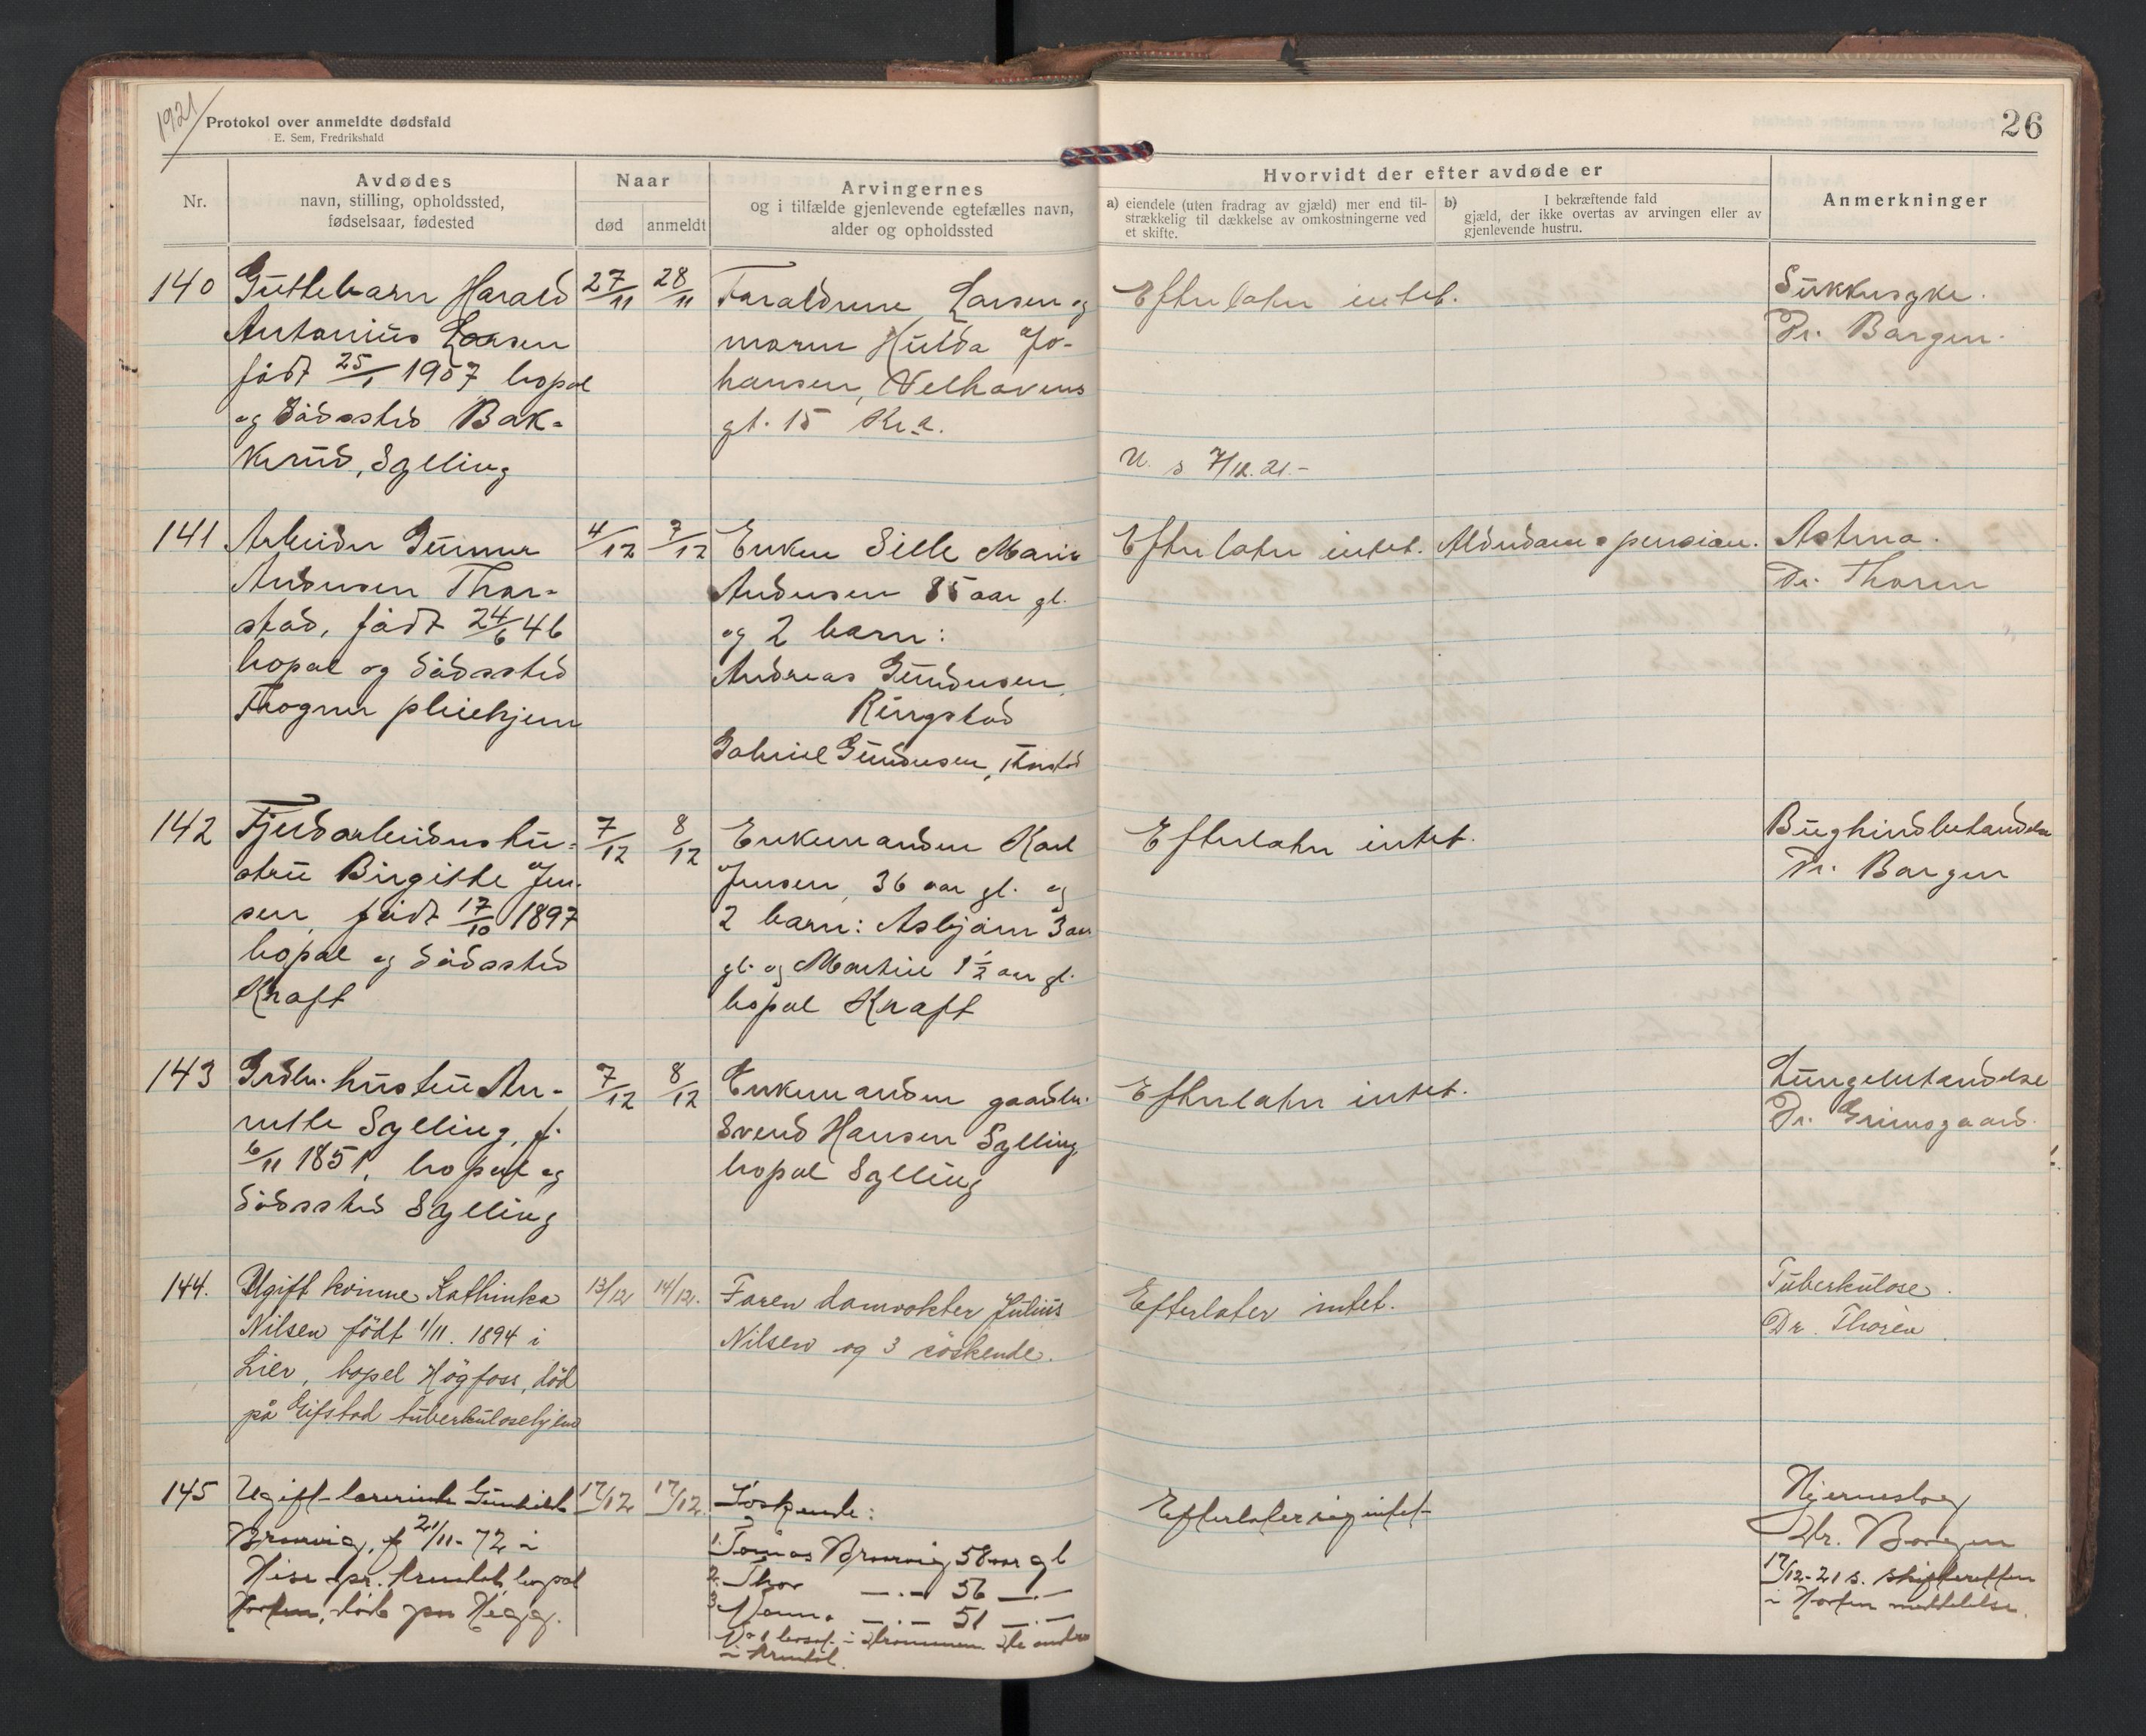 1921
Protokol over anmeldte dødsfald
E. Sem, Fredrikshald
26
Nr.
Avdødes
navn, stilling, opholdssted,
fødselsaar, fødested
Naar
død
anmeldt
Arvingernes
og i tilfælde gjenlevende egtefælles navn,
alder og opholdssted
Hvorvidt der efter avdøde er
a) eiendele (uten fradrag av gjæld) mer end til-
strækkelig til dækkelse av omkostningerne ved
et skifte.
b) I bekræftende fald
gjæld, der ikke overtas av arvingen eller av
gjenlevende hustru.
Anmerkninger
140
Guttebarn Harald
Antonius Larsen
født 25/1 1907 bopæl
og dødssted Bak-
kerud, Sylling
27/11
28/11
Forældrene Larsen og
moren Hulda Jo-
hansen, Velhavens
gt. 15 Kr.a.
Efterlater intet.
U. s. 7/12. 21.-
Sukkersyke.
Dr. Borgen.
141
Arbeider Gunner
Andersen Thor-
stad, født 24/6 46
bopæl og dødssted
Frogner pleiehjem
4/12
7/12
Enken Sille Marie
Andersen 85 aar gl.
og 2 barn:
Andreas Gundersen,
Ringstad
Gabriel Gundersen, Thorstad
Efterlater intet.
Alderdomspension.
Astma.
Dr. Thoren
142
Fjerdarbeiderhu-
stru Birgitte Jen-
sen, født 17/10 1897
bopæl og dødssted
Kraft
7/12
8/12
Enkemanden Karl
Jensen, 36 aar gl. og
2 barn: Asbjørn 3 aar
gl. og Martin 1 1/2 aar gl.
bopæl Kraft
Efterlater intet.
Bughindbetændelse
Dr. Borgen
143
Grdbr. hustru An-
nette Sylling, f.
6/11 1851, bopæl og
dødssted Sylling
7/12
8/12
Enkemanden gaardbr.
Svend Hansen Sylling
bopæl Sylling
Efterlater intet.
Lungebetændelse
Dr. Grimsgaard.
144.
Ugift kvinne Kathinka
Nilsen født 1/11. 1894 i
Lier, bopel Högfoss, död
på Eifstad tuberkulosehjem
13/12
14/12.
Faren damvokter Julius
Nilsen og 3 söskende.
Efterlater intet.
Tuberkulose.
Dr. Thorén.
145
Ugift lærerinde Gunhild
Braarvig, f 21/11-72 i
Hisø pr. Arendal, bopæl
Horten, död paa Hegg.
17/12
17/12.
Söskende:
1. Tomas Braarvig 58 aar gl
2. Thor —.— 56 —.—
3. —.— 51 —.—
No 1 bosat i Drammen De andre
i Arendal.
Efterlater sig intet
Hjerneslag
Dr. Borgen
17/12-21 s. skifteretten
i Horten meddelelse.